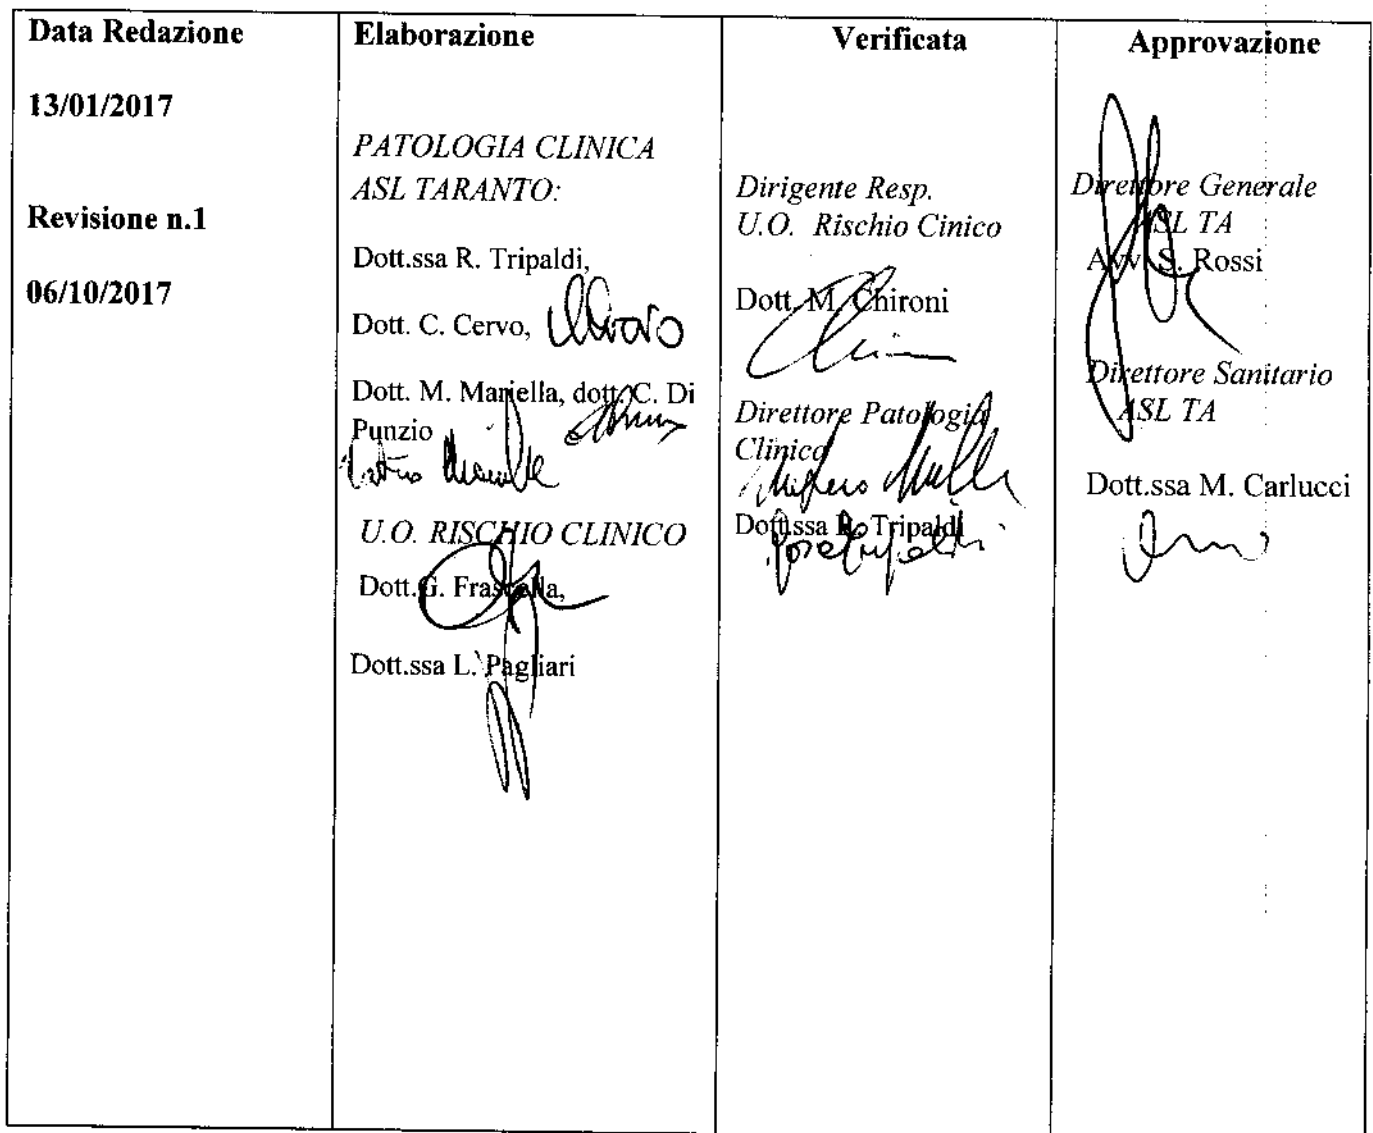 Data Redazione
13/01/2017
Revisione n.1
06/10/2017
Elaborazione
PATOLOGIA CLINICA
ASL TARANTO:
Dott.ssa R. Tripaldi,
Dott. C. Cervo,
Dott. M. Mariella, dott. C. Di
Punzio
U.O. RISCHIO CLINICO
Dott.G. Frascella,
Dott.ssa L. Pagliari
Verificata
Dirigente Resp.
U.O. Rischio Cinico
Dott. M. Chironi
Direttore Patologia
Clinica
Dott.ssa R. Tripaldi
Approvazione
Direttore Generale
ASL TA
Avv. S. Rossi
Direttore Sanitario
ASL TA
Dott.ssa M. Carlucci